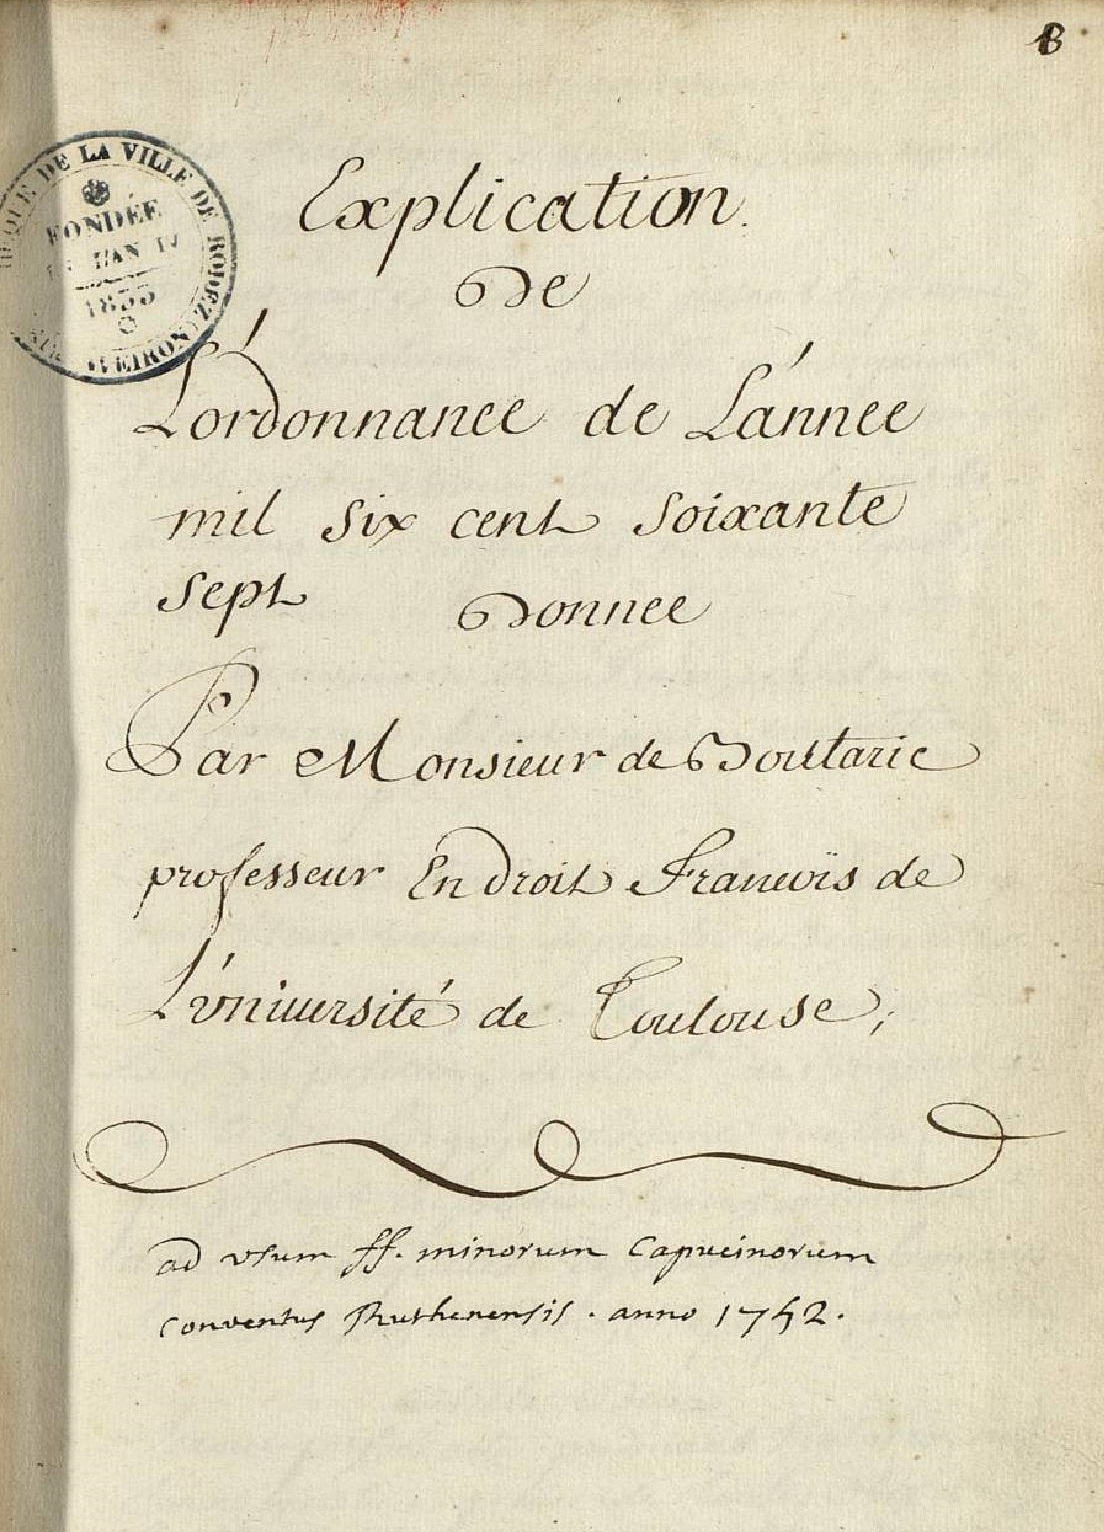 B
DE LA VILLE DE RODEZ (AVEIRON)
FONDÉE
L'AN IV
1833
Explication.
De
L'ordonnance de L'année
mil six cent soixante
sept Donnee
Par Monsieur de Boutaric
professeur En droit Francois de
L'vniuersité de Toulouse,
ad vsum ff. minorum Capucinorum
conventus Ruthenensis. anno 1752.